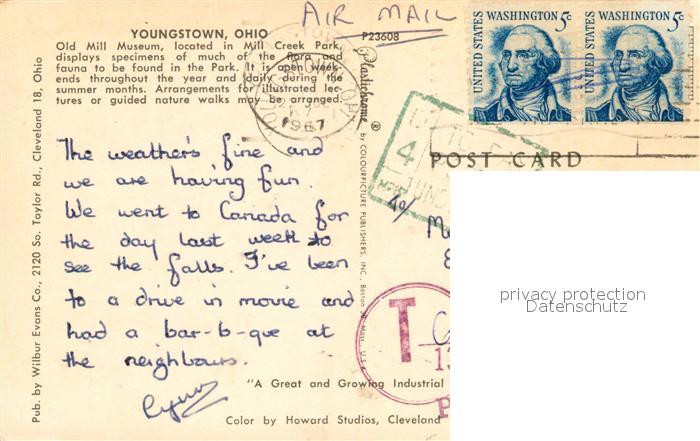 AIR MAIL
YOUNGSTOWN, OHIO
P23608
Old Mill Museum, located in Mill Creek Park,
displays specimens of much of the flora and
fauna to be found in the Park. It is open week-
ends throughout the year and daily during the
summer months. Arrangements for illustrated lec-
tures or guided nature walks may be arranged.
1967
UNITED STATES
WASHINGTON 5c
UNITED STATES
WASHINGTON 5c
POST CARD
The weather's fine and
we are having fun.
We went to Canada for
the day last week to
see the falls. I've been
to a drive in movie and
had a bar-b-que at
the neighbours.
Lynn
"A Great and Growing Industrial
Color by Howard Studios, Cleveland
Pub. by Wilbur Evans Co., 2120 So. Taylor Rd., Cleveland 18, Ohio
Plastichrome ® by COLOURPICTURE PUBLISHERS, INC., Boston 30, Mass., U.S.A.
T
privacy protection
Datenschutz